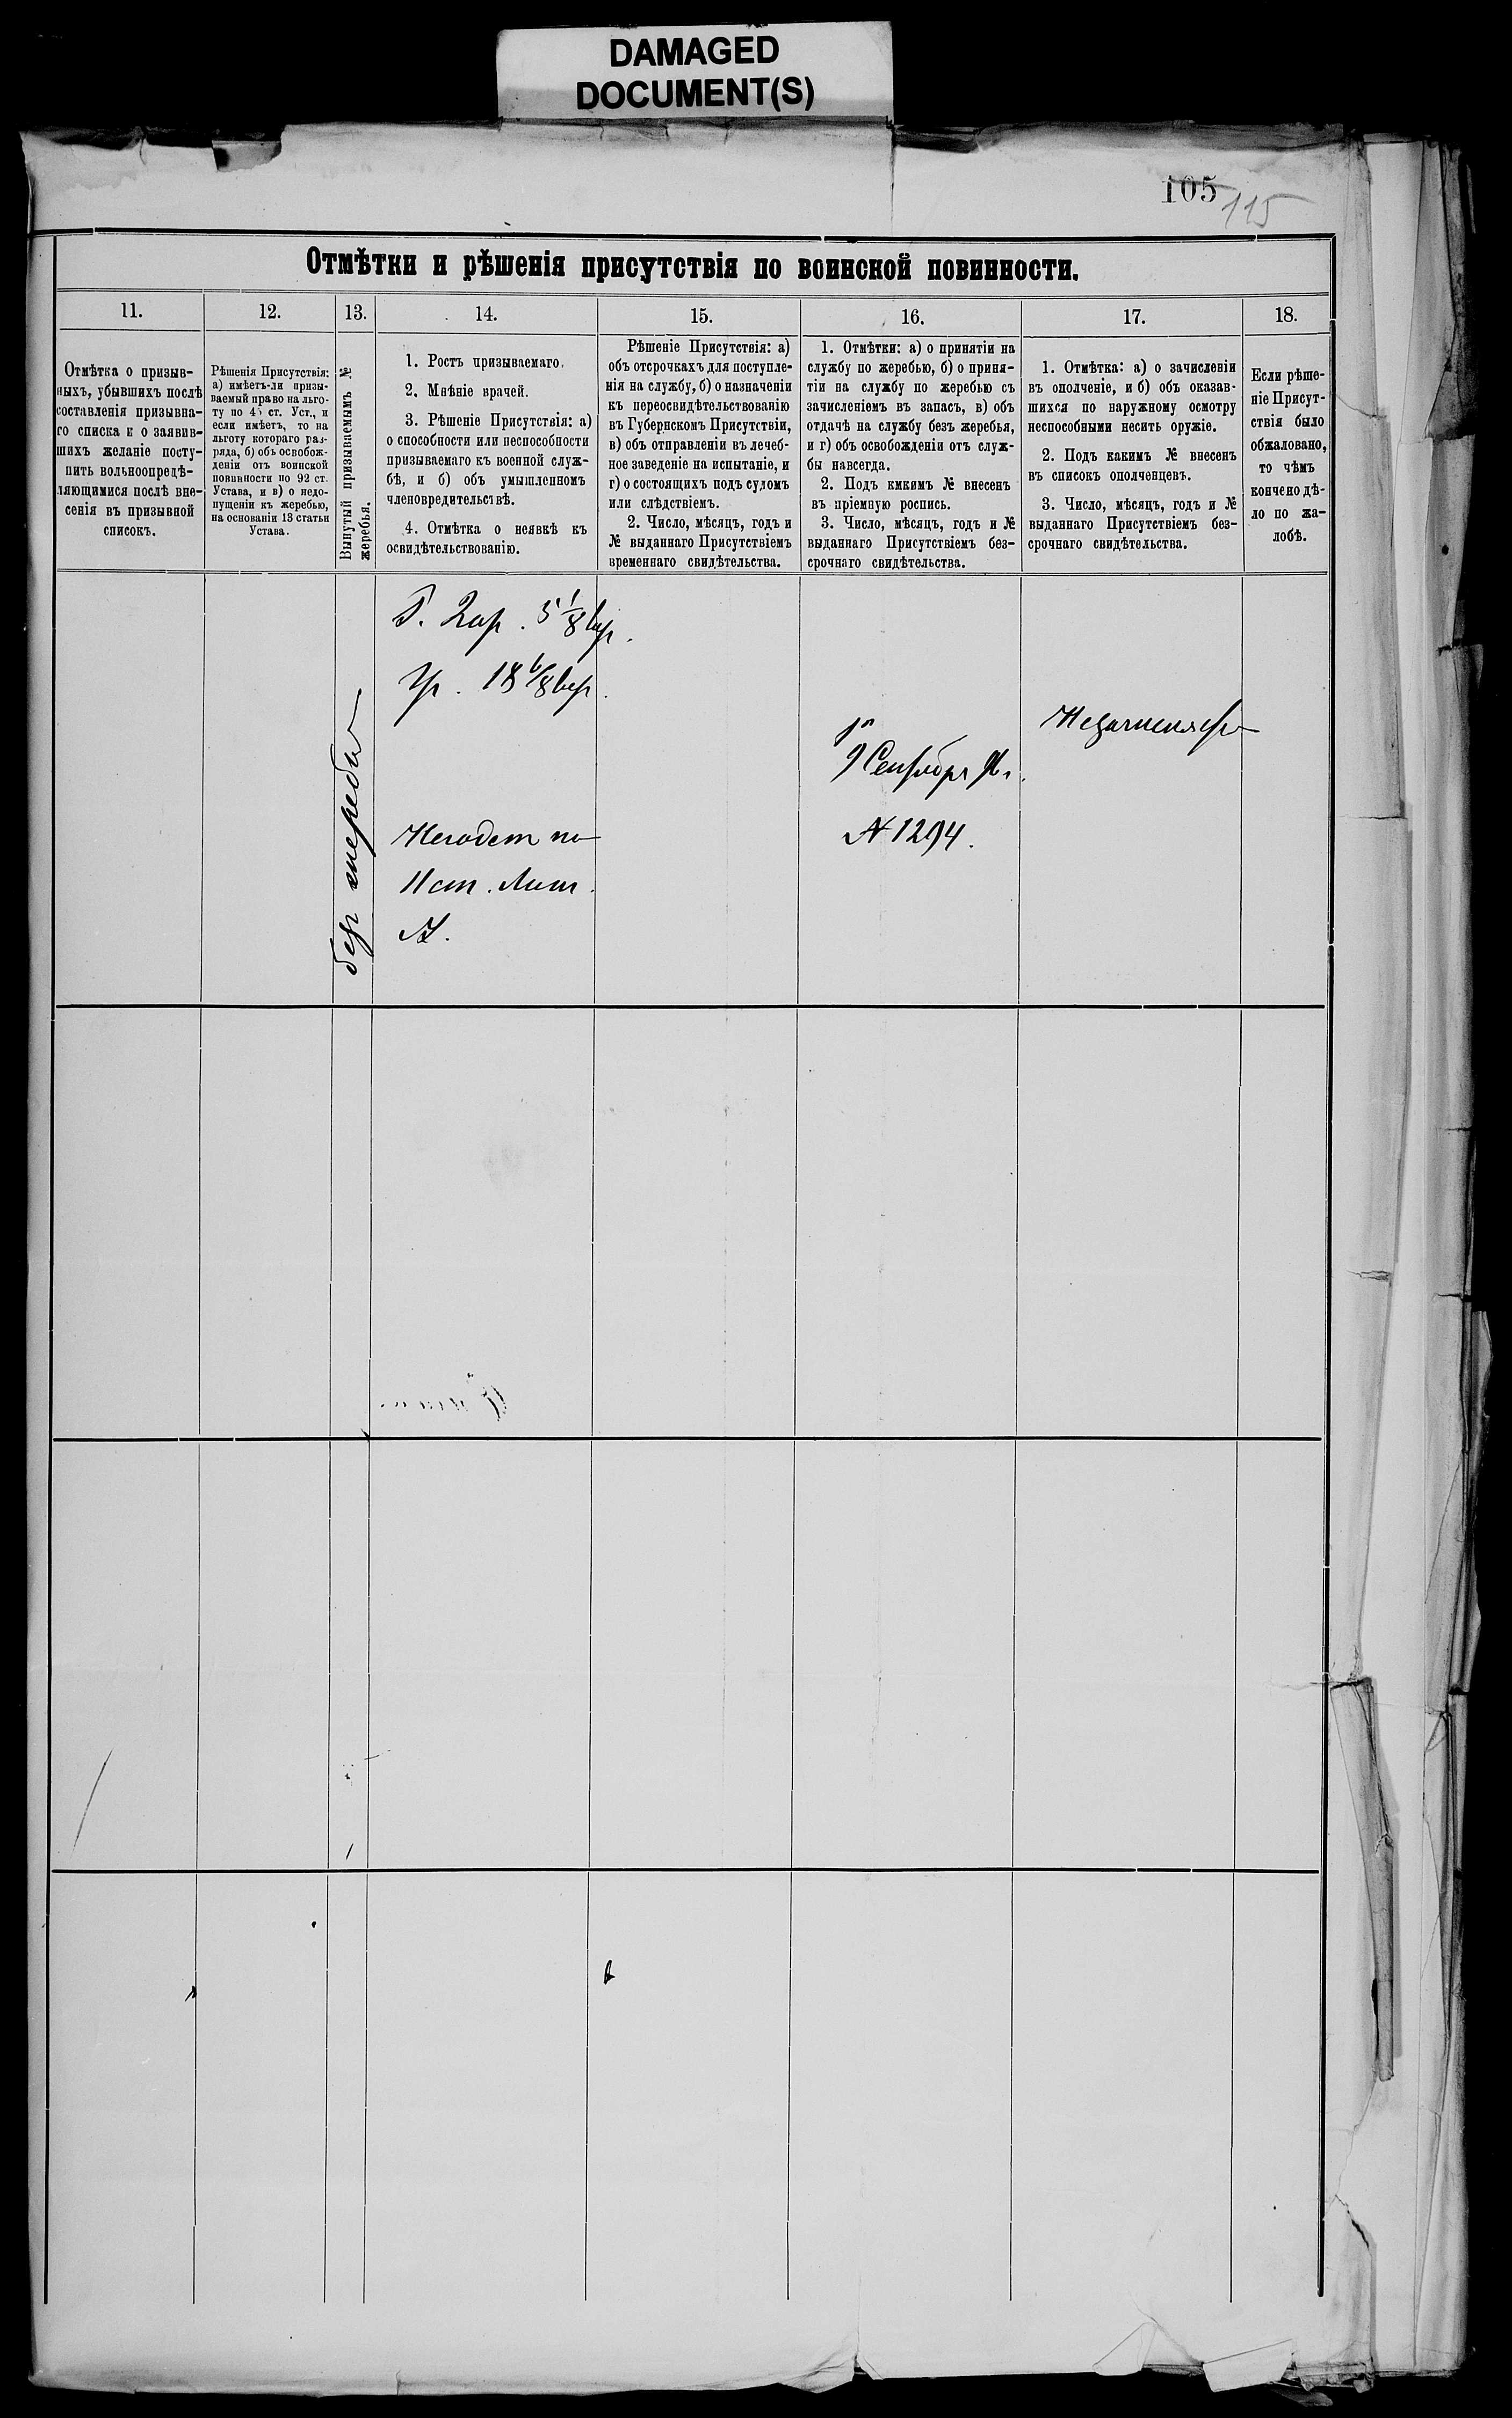 DAMAGED
DOCUMENT(S)
105
115
Отмѣтки и рѣшенія присутствія по воинской повинности.
11.
Отмѣтка о призыв-
ныхъ, убывшихъ послѣ
составленія призывна-
го списка и о заявив-
шихъ желаніе посту-
пить вольноопредѣ-
ляющимися послѣ вне-
сенія въ призывной
списокъ.
12.
Рѣшенія Присутствія:
а) имѣетъ-ли призы-
ваемый право на льго-
ту по 45 ст. Уст., и
если имѣетъ, то на
льготу котораго раз-
ряда, б) объ освобож-
деніи отъ воинской
повинности по 92 ст.
Устава, и в) о недо-
пущеніи къ жеребью,
на основаніи 13 статьи
Устава.
13.
Вынутый призываемымъ №
жеребья.
14.
1. Ростъ призываемаго.
2. Мнѣніе врачей.
3. Рѣшеніе Присутствія: а)
о способности или неспособности
призываемаго къ военной служ-
бѣ, и б) объ умышленномъ
членовредительствѣ.
4. Отмѣтка о неявкѣ къ
освидѣтельствованію.
15.
Рѣшеніе Присутствія: а)
объ отсрочкахъ для поступле-
нія на службу, б) о назначеніи
къ переосвидѣтельствованію
въ Губернскомъ Присутствіи,
в) объ отправленіи въ лечеб-
ное заведеніе на испытаніе, и
г) о состоящихъ подъ судомъ
или слѣдствіемъ.
2. Число, мѣсяцъ, годъ и
№ выданнаго Присутствіемъ
временнаго свидѣтельства.
16.
1. Отмѣтки: а) о принятіи на
службу по жеребью, б) о приня-
тіи на службу по жеребью съ
зачисленіемъ въ запасъ, в) объ
отдачѣ на службу безъ жеребья,
и г) объ освобожденіи отъ служ-
бы навсегда.
2. Подъ кмкимъ № внесенъ
въ пріемную роспись.
3. Число, мѣсяцъ, годъ и №
выданнаго Присутствіемъ без-
срочнаго свидѣтельства.
17.
1. Отмѣтка: а) о зачисленіи
въ ополченіе, и б) объ оказав-
шихся по наружному осмотру
неспособными несить оружіе.
2. Подъ какимъ № внесенъ
въ списокъ ополченцевъ.
3. Число, мѣсяцъ, годъ и №
выданнаго Присутствіемъ без-
срочнаго свидѣтельства.
18.
Если рѣше-
ніе Присут-
ствія было
обжаловано,
то чѣмъ
кончено дѣ-
ло по жа-
лобѣ.
без жеребья
Р. 2 ар. 5 1/8 вер.
Гр. 18 6/8 вер.
Негоден по
11 ст. Лит.
А.
9 Сентября
№ 1294.